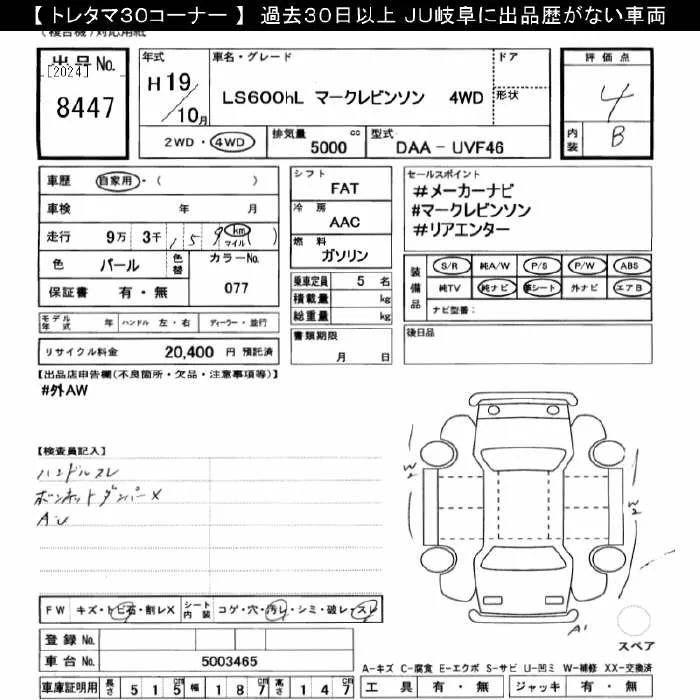 【 トレタマ30コーナー 】 過去30日以上 JU岐阜に出品歴がない車両
（複合機）対応用紙
出品No. [2024] 8447
年式 H19/10月
車名・グレード LS600hL マークレビンソン 4WD
ドア
形状
2WD・4WD
排気量 5000 cc
型式 DAA－UVF46
評価点 4
内装 B
車歴 自家用・( )
車検 年 月
走行 9万 3千 1 5 9 km マイル ( )
色 パール 色替 カラーNo. 077
保証書 有・無
モデル年式 年 ハンドル 左・右 ディーラー・並行
リサイクル料金 20,400 円 預託済
シフト FAT
冷房 AAC
燃料 ガソリン
乗車定員 5 名
積載量 kg
総重量 kg
書類期限
月 日
セールスポイント
#メーカーナビ
#マークレビンソン
#リアエンター
装備品 S/R 純A/W P/S P/W ABS
純TV 純ナビ 革シート 外ナビ エアB
ナビ型番：
後日品
【出品店申告欄(不良箇所・欠品・注意事項等)】
#外AW
【検査員記入】
ハンドルスレ
ボンネットダンパーX
A・U
W2
W2
A1
スペア
FW キズ・トビ石・割レX シート内装 コゲ・穴・汚レ・シミ・破レ・スレ
登録 No.
車台 No. 5003465
A-キズ C-腐食 E-エクボ S-サビ U-凹ミ W-補修 XX-交換済
車庫証明用 長さ 515 cm 幅 187 cm 高さ 147 cm
工具 有・無 ジャッキ 有・無